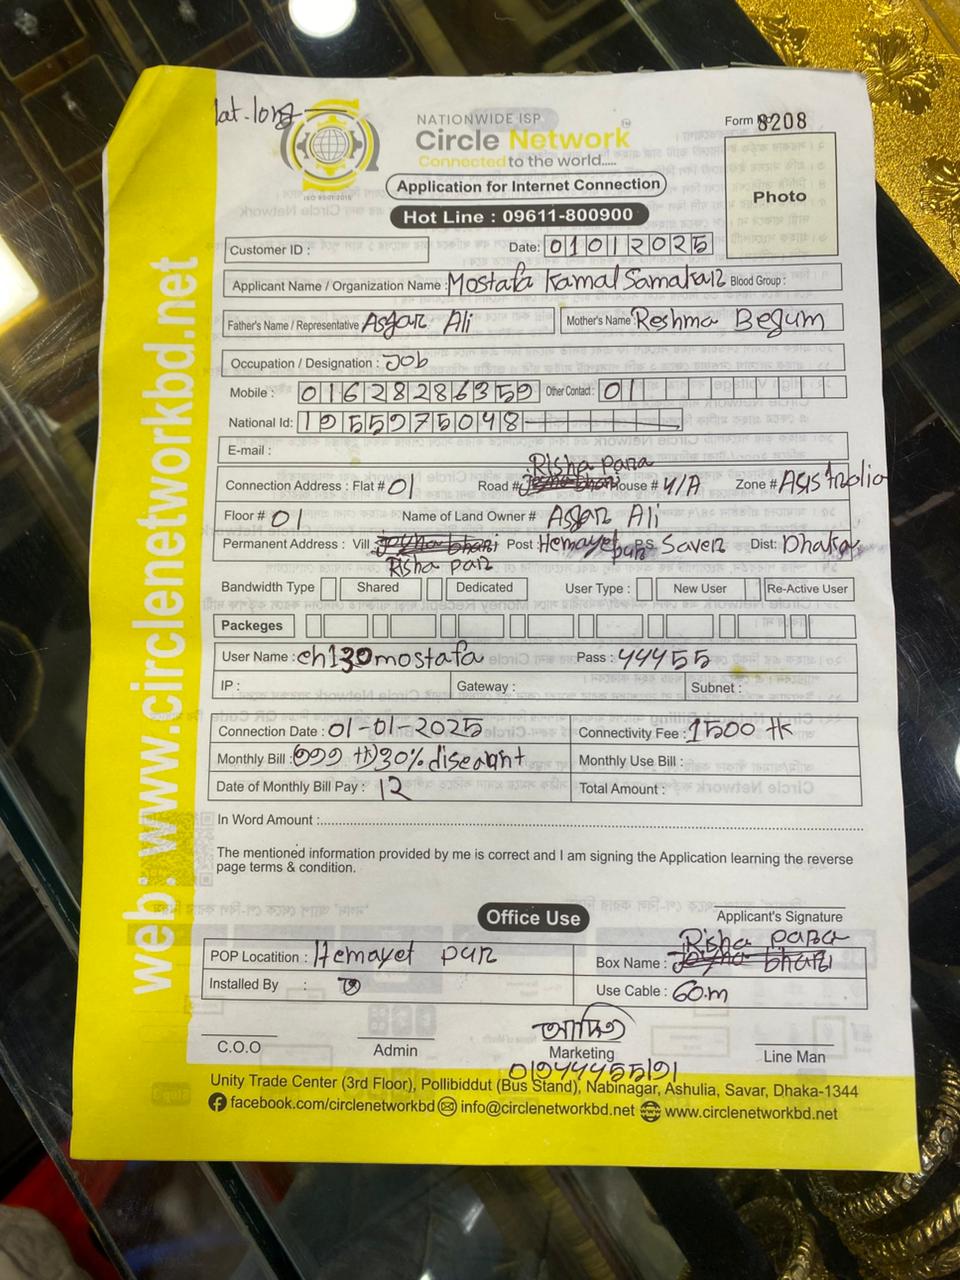 lat-long
NATIONWIDE ISP
Circle Network™
Connected to the world.....
ISO 9001:2015
Form No 8208
Photo
Application for Internet Connection
Hot Line : 09611-800900
Customer ID :
Date: 01012025
Applicant Name / Organization Name : Mostafa Kamal Samakar Blood Group :
Father's Name / Representative Asgar Ali Mother's Name : Reshma Begum
Occupation / Designation : Job
Mobile : 01628286359 Other Contact : 01
National Id: 1955975048
E-mail :
Risha para
Connection Address : Flat # 01 Road # House # 4/A Zone #
Floor # 01 Name of Land Owner # Asgar Ali
Permanent Address : Vill Post Hemayet pur P.S Saver Dist: Dhaka
Risha par
Bandwidth Type Shared Dedicated User Type : New User Re-Active User
Packeges
User Name : ch130mostafa Pass : 44455
IP : Gateway : Subnet :
Connection Date : 01-01-2025 Connectivity Fee : 1500 tk
Monthly Bill : 999 tk 30% discount Monthly Use Bill :
Date of Monthly Bill Pay : 12 Total Amount :
In Word Amount :
The mentioned information provided by me is correct and I am signing the Application learning the reverse
page terms & condition.
Office Use
Applicant's Signature
Risha para
POP Locatition : Hemayet pur Box Name :
Installed By : Use Cable : 60m
C.O.O Admin Marketing Line Man
01944455191
Unity Trade Center (3rd Floor), Pollibiddut (Bus Stand), Nabinagar, Ashulia, Savar, Dhaka-1344
facebook.com/circlenetworkbd info@circlenetworkbd.net www.circlenetworkbd.net
web: www.circlenetworkbd.net